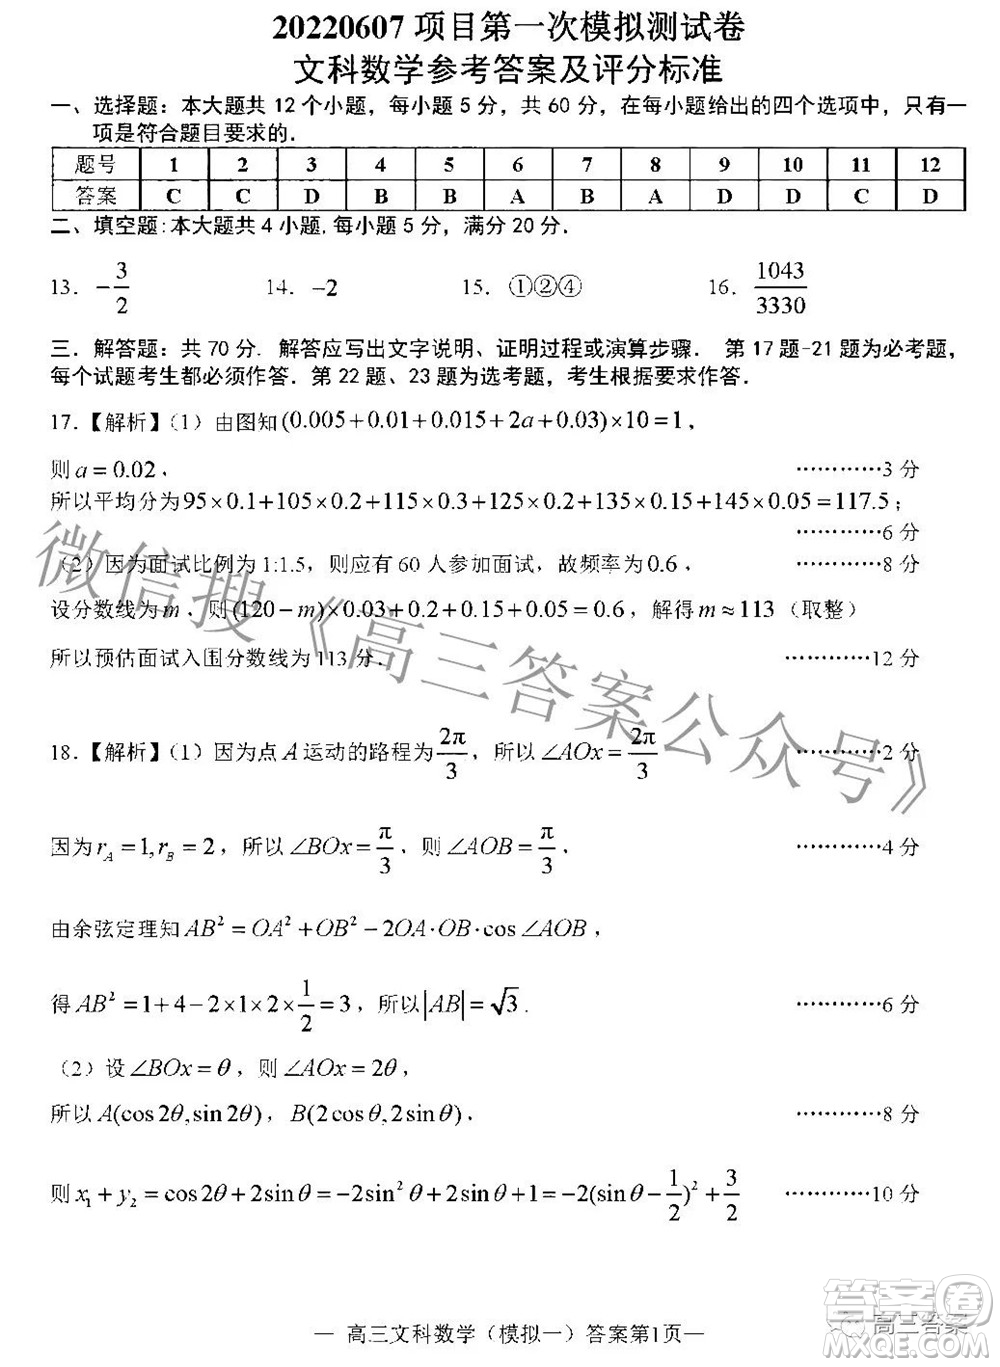 20220607 项目第一次模拟测试卷
文科数学参考答案及评分标准
一、选择题：本大题共 12 个小题，每小题 5 分，共 60 分，在每小题给出的四个选项中，只有一
项是符合题目要求的．
题号 1 2 3 4 5 6 7 8 9 10 11 12
答案 C C D B B A B A D D C D
二、填空题：本大题共 4 小题，每小题 5 分，满分 20 分．
13．-3/2 14．-2 15．①②④ 16．1043/3330
三．解答题：共 70 分．解答应写出文字说明、证明过程或演算步骤． 第 17 题-21 题为必考题，
每个试题考生都必须作答．第 22 题、23 题为选考题，考生根据要求作答．
17.【解析】（1）由图知 (0.005+0.01+0.015+2a+0.03)×10=1，
则 a=0.02． …………3 分
所以平均分为95×0.1+105×0.2+115×0.3+125×0.2+135×0.15+145×0.05=117.5；
…………6 分
（2）因为面试比例为 1:1.5，则应有 60 人参加面试，故频率为 0.6． …………8 分
设分数线为 m．则 (120-m)×0.03+0.2+0.15+0.05=0.6，解得 m≈113（取整）
所以预估面试入围分数线为 113 分． …………12 分
18.【解析】（1）因为点 A 运动的路程为 2π/3，所以 ∠AOx=2π/3 …………2 分
因为 r_A=1,r_B=2，所以 ∠BOx=π/3．则 ∠AOB=π/3． …………4 分
由余弦定理知 AB²=OA²+OB²-2OA·OB·cos∠AOB，
得 AB²=1+4-2×1×2×1/2=3，所以|AB|=√3． …………6 分
（2）设 ∠BOx=θ，则 ∠AOx=2θ，
所以 A(cos2θ,sin2θ)，B(2cosθ,2sinθ)． …………8 分
则 x₁+y₂=cos2θ+2sinθ=-2sin²θ+2sinθ+1=-2(sinθ-1/2)²+3/2 …………10 分
— 高三文科数学（模拟一）答案第1页—
微信搜《高三答案公众号》
答案圈
高三答案
MXQE.COM